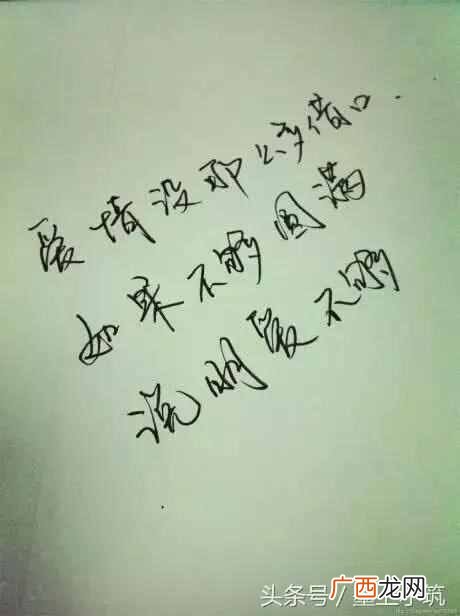 爱情没那么多借口.
如果不够圆满
说明爱不够
头条号/
小筑
广西龙网